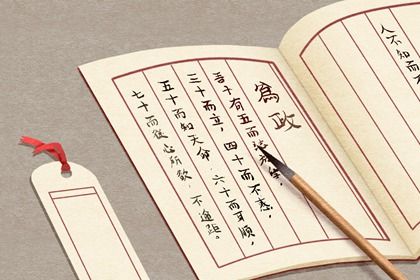 人不知而
為政
吾十有五而志於學，
三十而立，四十而不惑，
五十而知天命，六十而耳順，
七十而從心所欲，不逾距。